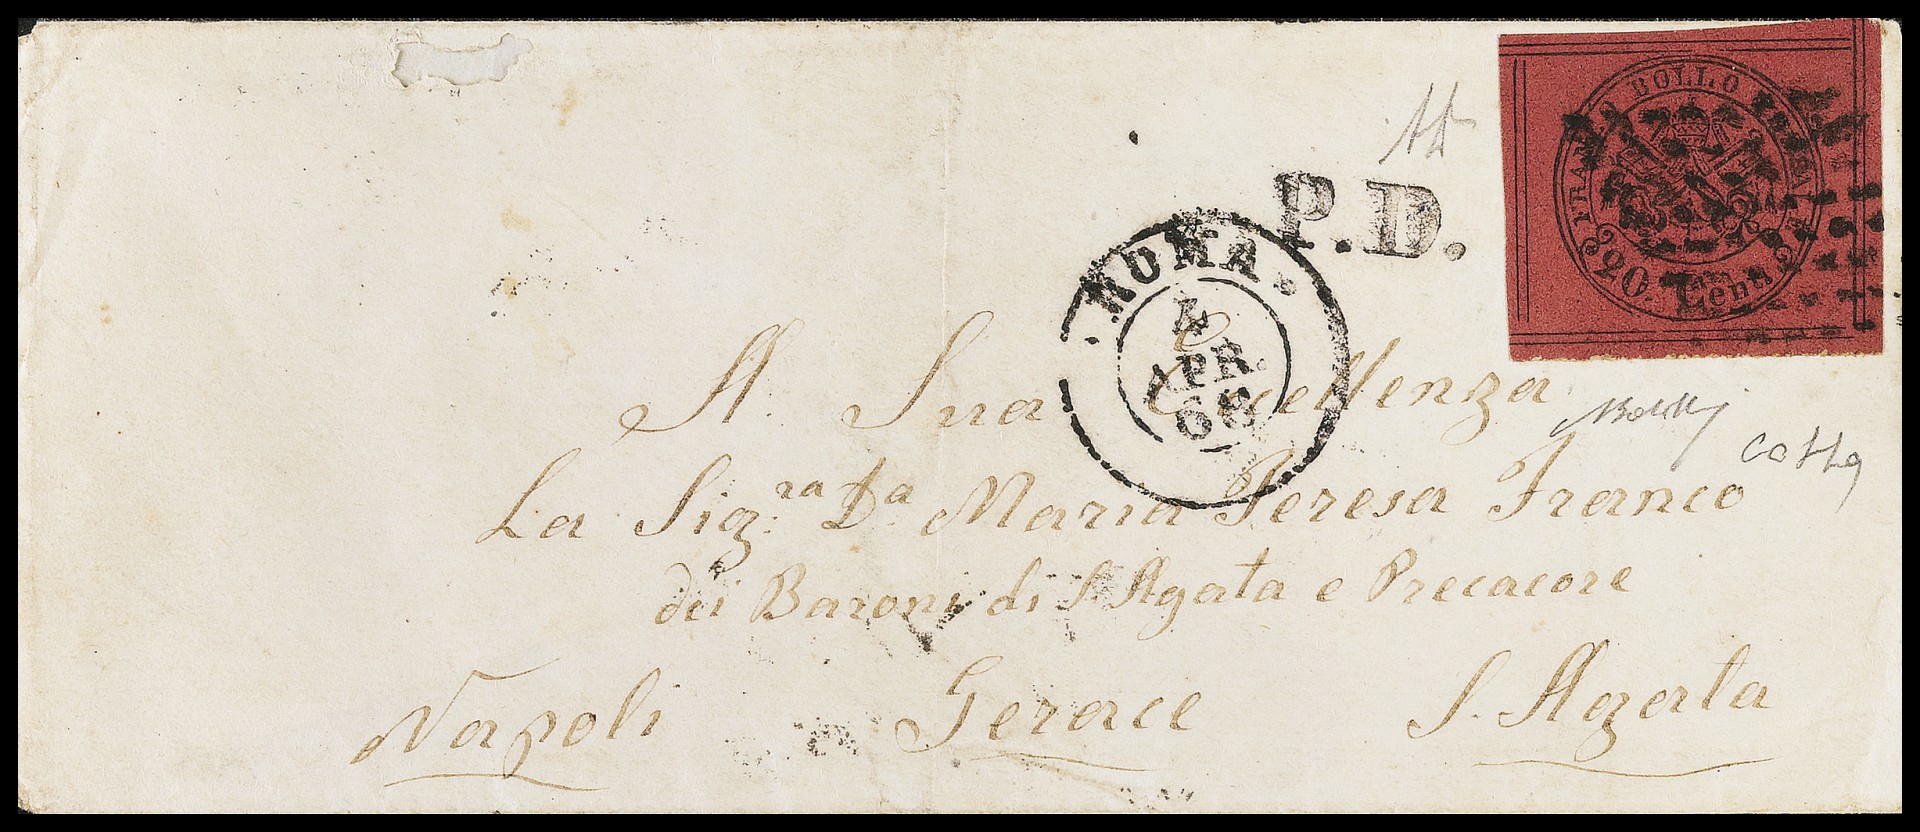 FRANCO BOLLO POSTALE
20 Cent
P.D.
ROMA.
4
APR.
68
A. Sua Eccellenza
La Sig.ra Da Maria Teresa Franco
dei Baroni di S. Agata e Precacore
Napoli Gerace S. Agata